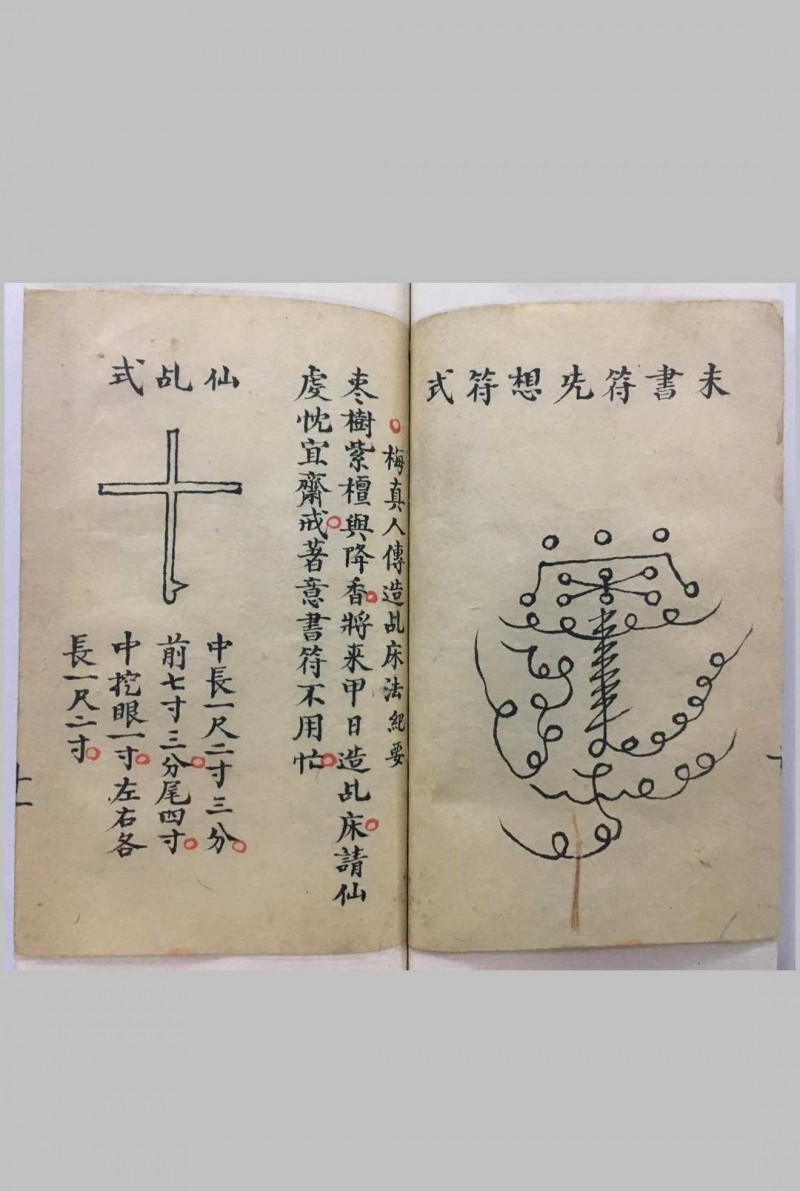 未書符先想符式
梅真人傳造乩床法紀要
枣樹紫檀與降香將來甲日造乩床請仙
虔忱宜齋戒著意書符不用忙
仙乩式
中長一尺二寸三分
前七寸三分尾四寸
中挖眼一寸左右各
長一尺二寸
十一